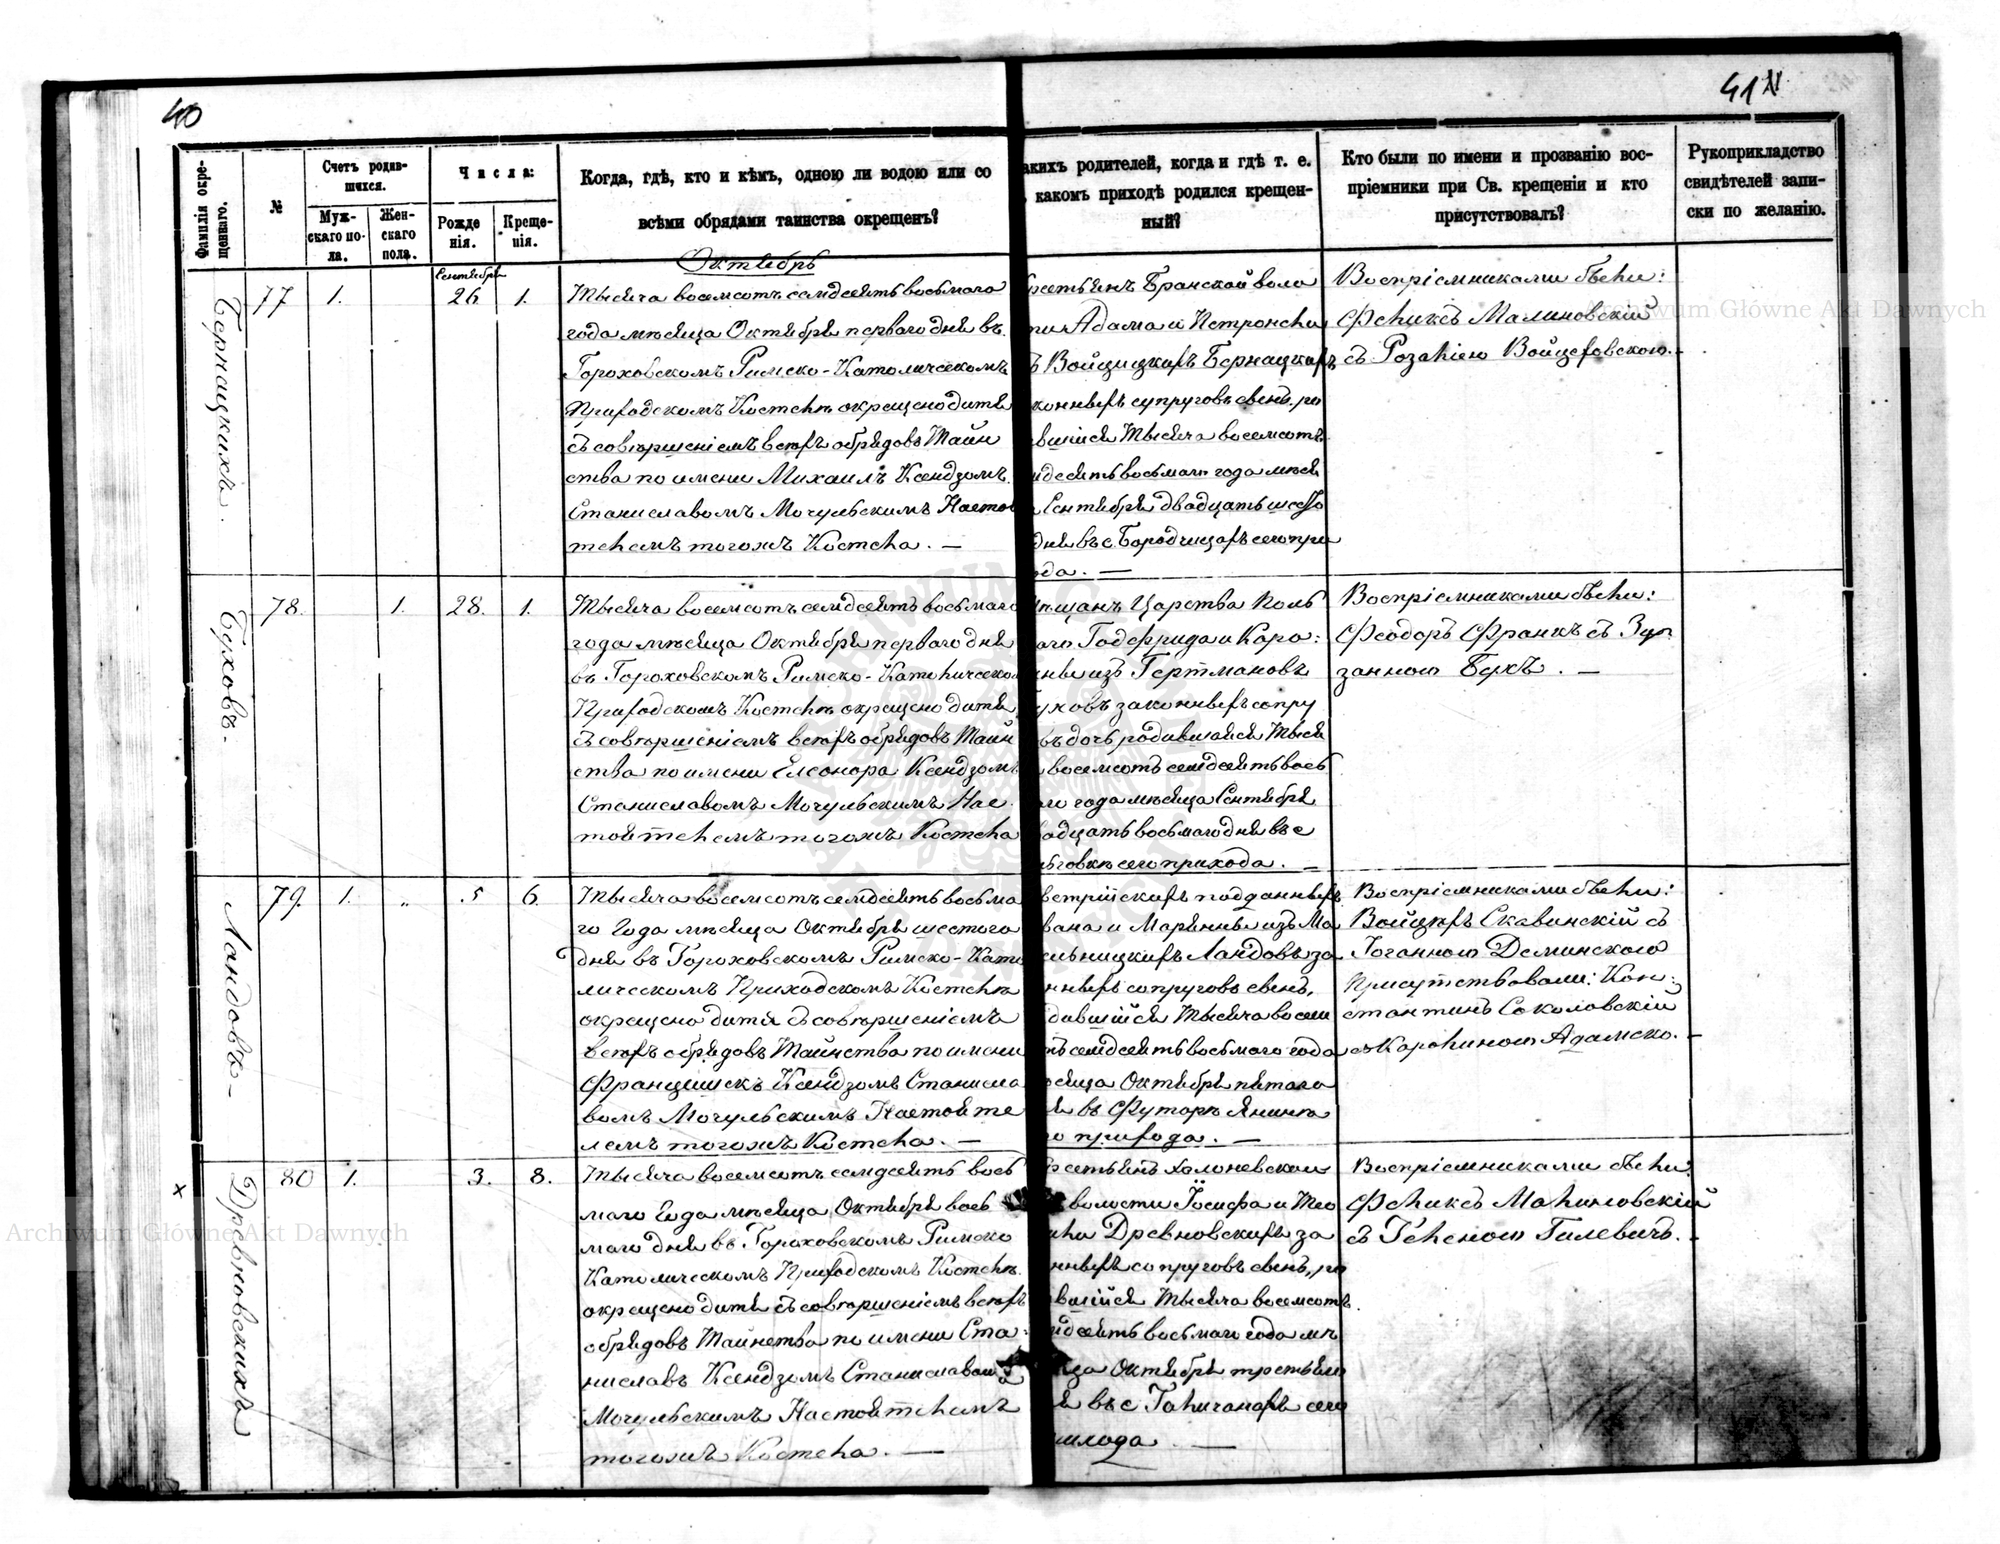 40
41
Фамилія окре-
щеннаго.
№
Счетъ родив-
шихся.
Муж-
скаго по-
ла.
Жен-
скаго
пола.
Числа:
Рожде
нія.
Креще-
нія.
Когда, гдѣ, кто и кѣмъ, одною ли водою или со
всѣми обрядами таинства окрещенъ?
акихъ родителей, когда и гдѣ т. е.
какомъ приходѣ родился крещен-
ный?
Кто были по имени и прозванію вос-
пріемники при Св. крещеніи и кто
присутствовалъ?
Рукоприкладство
свидѣтелей запи-
ски по желанію.
Октябрь
Бернацкихъ.
77
1.
Сентября
26
1.
Тысяча восемсотъ семдесятъ восьмаго
года мѣсяца Октября перваго дня въ
Гороховскомъ Римско-Католическомъ
Приходскомъ Костелѣ окрещено дитя
съ совершеніемъ всѣхъ обрядовъ Таин
ства по имени Михаилъ Ксендзомъ
Станиславомъ Мочульскимъ Настоя
телемъ тогожъ Костела. —
рестьянъ Бранской воло
ти Адама и Петронели
ъ Войцицкихъ Бернацкихъ
конныхъ супруговъ сынъ, ро
вшійся Тысяча восемсотъ
мдесятъ восьмаго года мѣся
Сентября двадцать шесто
дня въ с. Бородчицахъ сего при
ода. —
Воспріемниками были:
Феликсъ Малиновскій
съ Розаліею Войцеховскою. —
Буховъ-
78.
1.
28.
1.
Тысяча восемсотъ семдесятъ восьмаго
года мѣсяца Октября перваго дня
въ Гороховскомъ Римско-Католическом
Приходскомъ Костелѣ окрещено дитя
съ совершеніемъ всѣхъ обрядовъ Таин
ства по имени Елеонора Ксендзомъ
Станиславомъ Мочульскимъ Нас
тоятелемъ тогожъ Костела
ѣщанъ Царства Поль
аго Годфрида и Каро:
ны изъ Гертмановъ
уховъ законныхъ супру
въ дочь родившаяся Тыся
восемсотъ семдесятъ вось
го года мѣсяца Сентября
вадцать восьмаго дня въ с
говкѣ сего прихода. —
Воспріемниками были:
Феодоръ Франкъ съ Зу
занною Бухъ. —
Ландовъ-
79.
1.
„
5
6.
Тысяча восемсотъ семдесятъ восьма
го Года мѣсяца Октября шестого
дня въ Гороховскомъ Римско-Като
лическомъ Приходскомъ Костелѣ
окрещено дитя съ совершеніемъ
всѣхъ обрядовъ Таинства по имени
Францишекъ Ксендзомъ Станисла
вомъ Мочульскимъ Настояте
лемъ тогожъ Костела. —
встрійскихъ подданныхъ
вана и Маріанны изъ Ма
ельницкихъ Ландовъ за
нныхъ супруговъ сынъ,
дившійся Тысяча восем
тъ семдесятъ восьмаго года
сяца Октября пятаго
я въ Футорѣ Янино
о прихода. —
Воспріемниками были:
Войцѣхъ Скавинскій съ
Іоганною Деминского
Присутствовали: Кон:
стантинъ Соколовскій
съ Каролиною Адамско. —
×
Древновскихъ
80
1.
3.
8.
Тысяча восемсотъ семдесятъ вось
маго Года мѣсяца Октября вось
маго дня въ Гороховскомъ Римско
Католическомъ Приходскомъ Костелѣ
окрещено дитя съ совершеніемъ всѣхъ
обрядовъ Таинства по имени Ста-
ниславъ Ксендзомъ Станиславом
Мочульскимъ Настоятелемъ
тогожъ Костела. —
рестьянъ Холоневской
волости Іосифа и Тео
или Древновскихъ за
нныхъ супруговъ сынъ, ро
вшійся Тысяча восемсотъ
мдесятъ восьмаго года мѣ
ца Октября третьяго
я въ с Галичанахъ сего
ихода —
Воспріемниками были:
Феликсъ Малиновскій
съ Геленою Гилевичъ. —
Archiwum Główne Akt Dawnych
Archiwum Główne Akt Dawnych